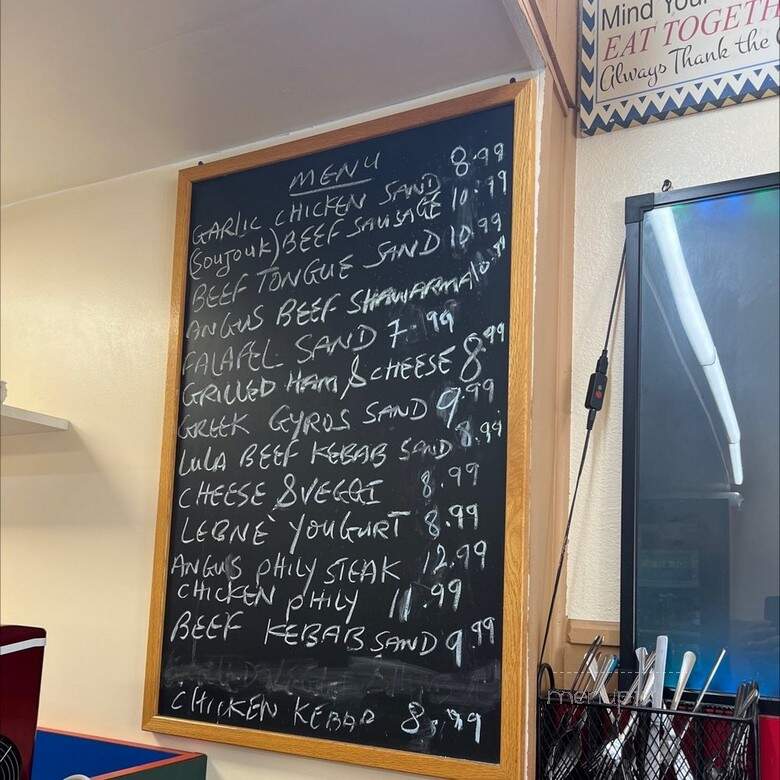 Mind Your
EAT TOGETH
Always Thank the
MENU
GARLIC CHICKEN SAND 8.99
(SOUJOUK) BEEF SAUSAGE 10.99
BEEF TONGUE SAND 10.99
ANGUS BEEF SHAWARMA 10.99
FALAFEL SAND 7.99
GRILLED HAM & CHEESE 8.99
GREEK GYROS SAND 9.99
LULA BEEF KEBAB SAND 8.99
CHEESE & VEGGI 8.99
LEBNÈ YOUGURT 8.99
ANGUS PHILY STEAK 12.99
CHICKEN PHILY 11.99
BEEF KEBAB SAND 9.99
CHICKEN KEBAB 8.99